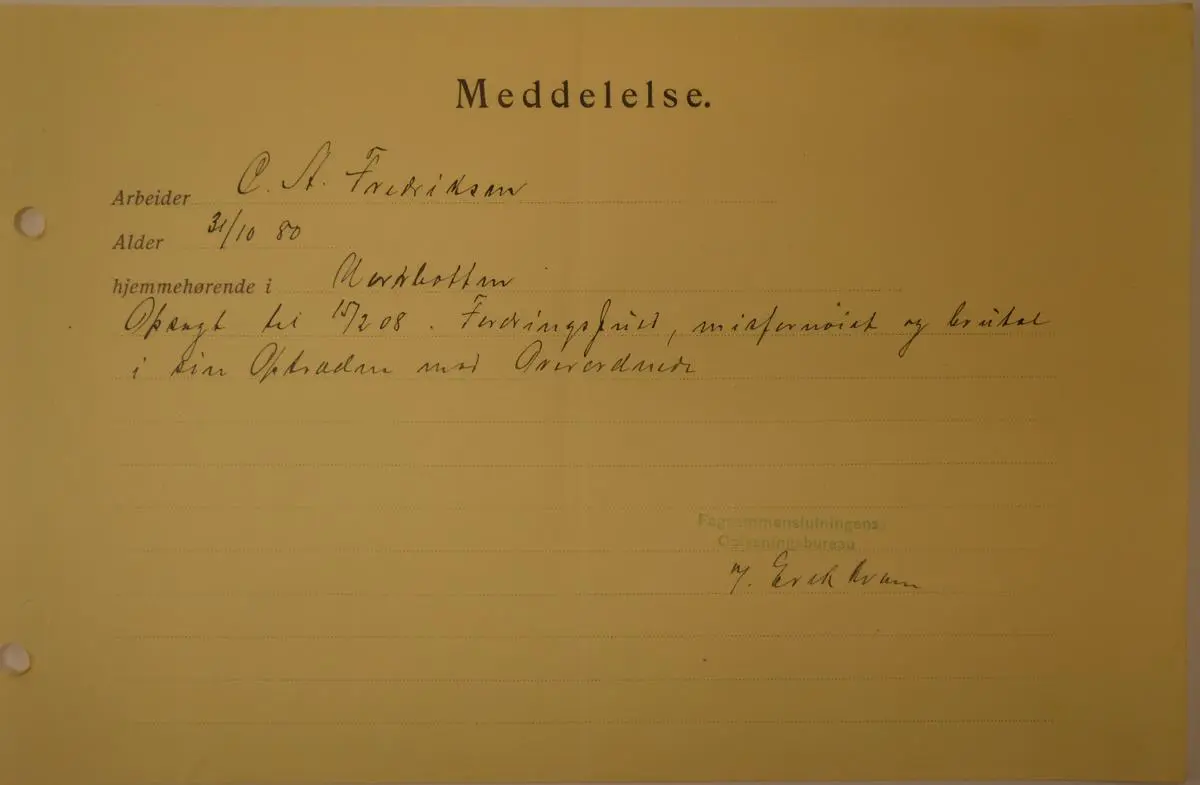 Meddelelse.
Arbeider C. A. Fredriksen
Alder 31/10 80
hjemmehørende i Norrbotten
Opsagt til 15/2 08. Fordringsfuld, misfornøiet og brutal
i sin Optræden mod Overordnede
Fagsammenslutningens
Oplysningsbureau
Erik